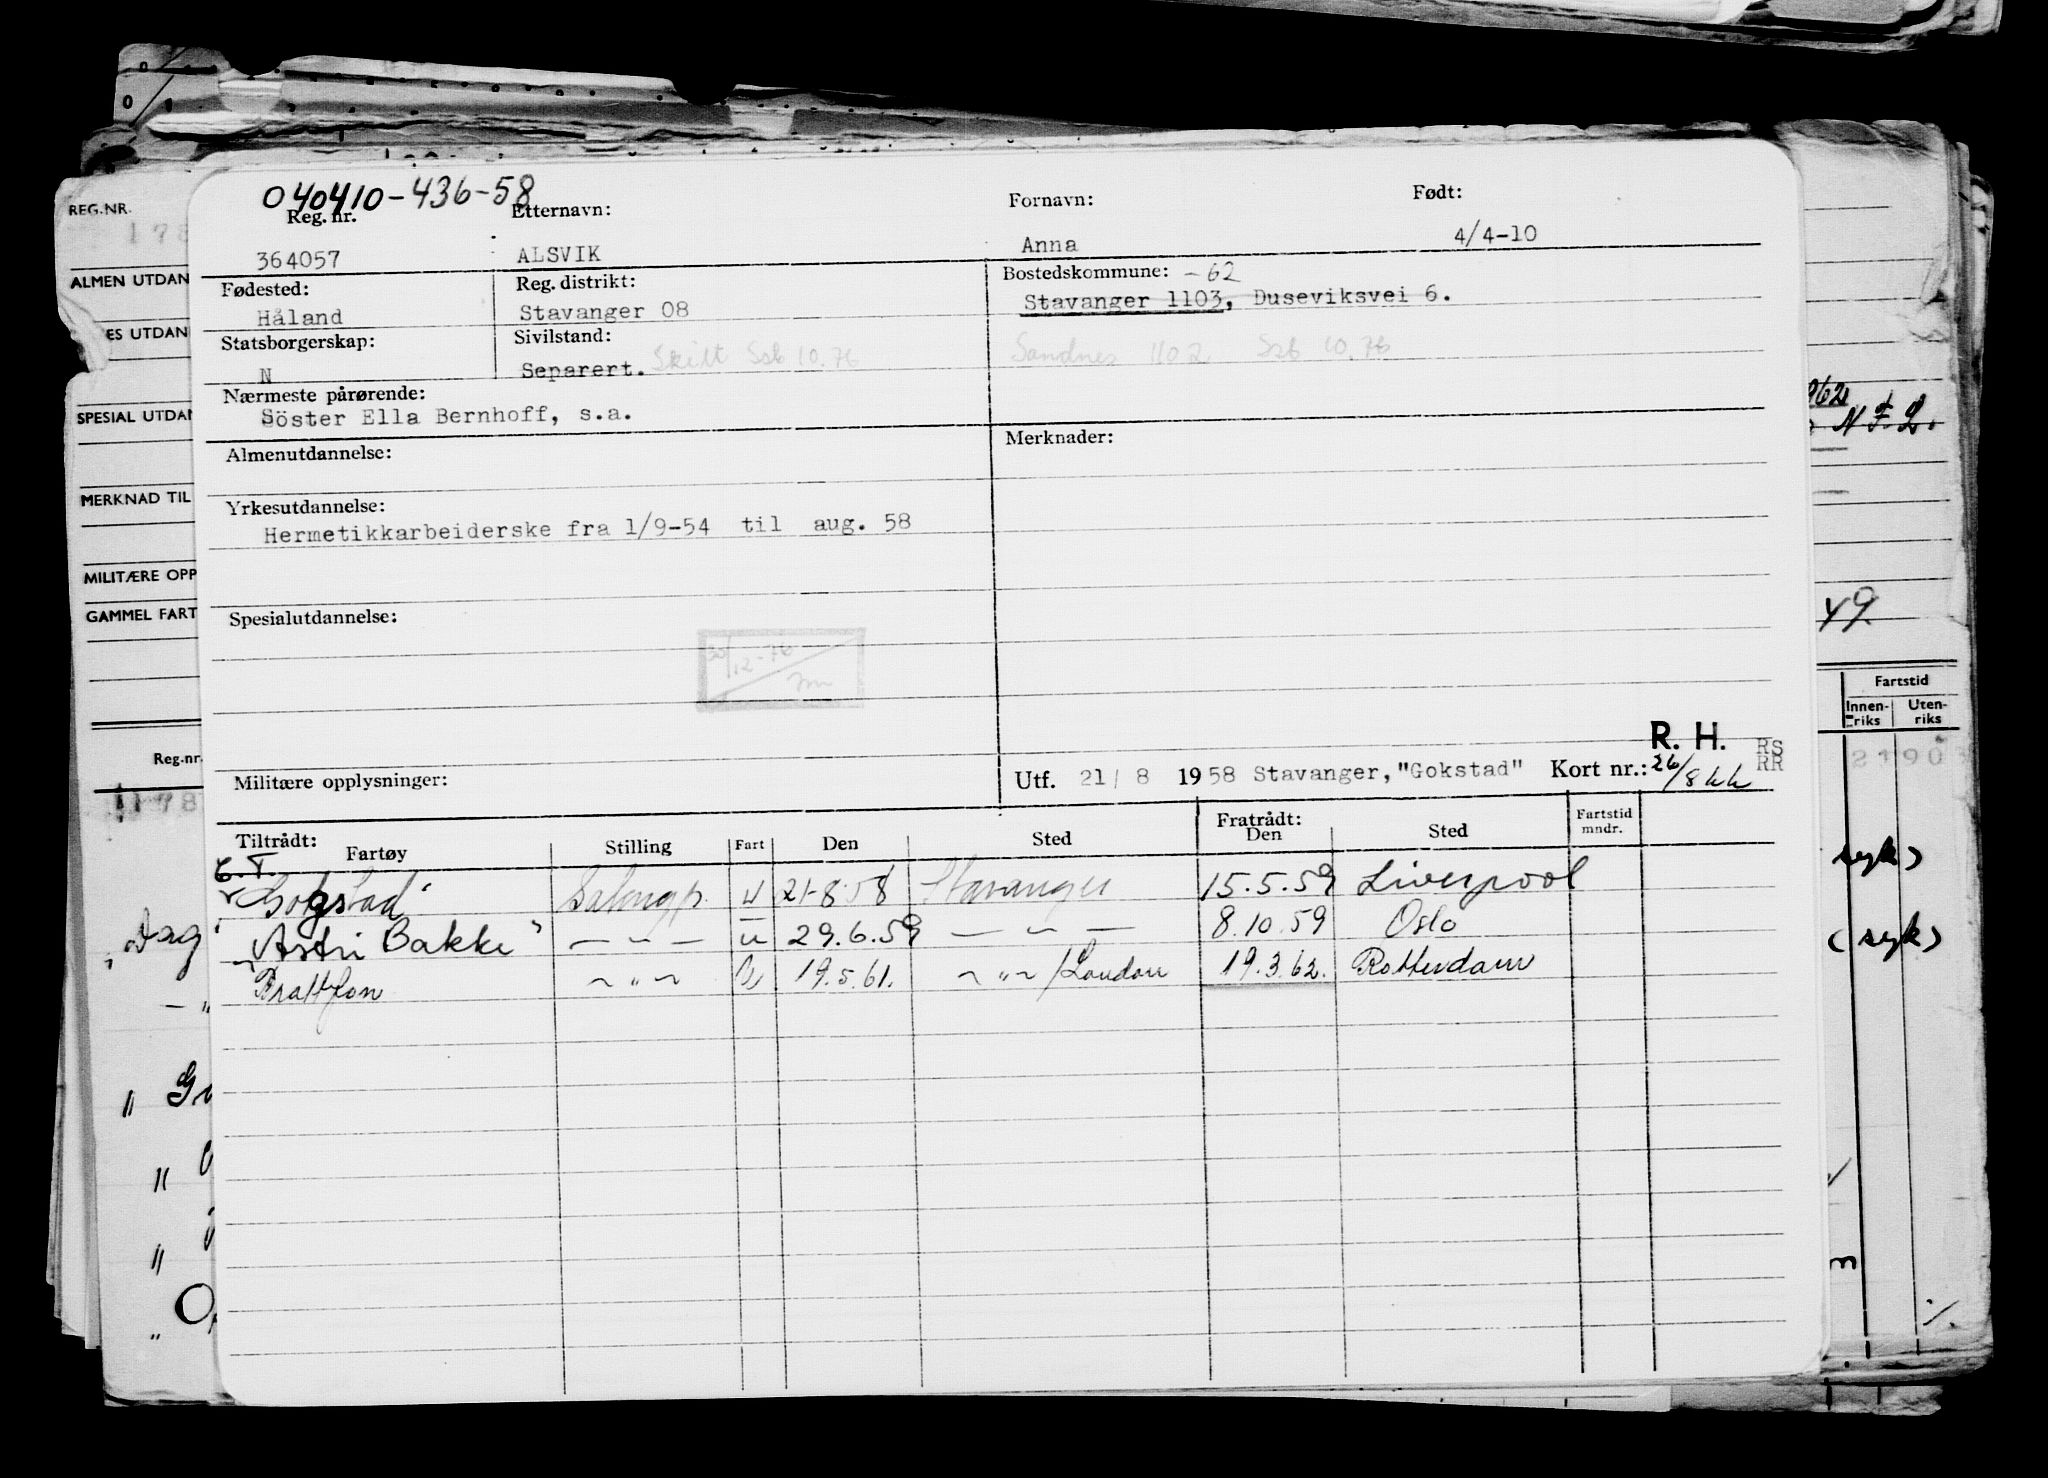 040410-436-58
Reg. nr. Etternavn: Fornavn: Født:
364057 ALSVIK Anna 4/4-10
Fødested: Reg. distrikt: Bostedskommune: -62
Håland Stavanger 08 Stavanger 1103, Duseviksvei 6.
Statsborgerskap: Sivilstand:
N Separert. Skilt Ssb 10.76 Sandnes 1102 Ssb 10.76
Nærmeste pårørende:
Söster Ella Bernhoff, s.a.
Almenutdannelse: Merknader:
Yrkesutdannelse:
Hermetikkarbeiderske fra 1/9-54 til aug. 58
Spesialutdannelse:
30/12-76
R. H. RS
RR
Militære opplysninger: Utf. 21/ 8 1958 Stavanger, "Gokstad" Kort nr.: 26/8
Tiltrådt: Fartøy Stilling Fart Den Sted Fratrådt: Den Sted Fartstid mndr.
"Gokstad" Salongp. u 21-8-58 Stavanger 15.5.59 Liverpool
"Astri Bakke" — " — u 29.6.59 — " — 8.10.59 Oslo
Brattfon — " — 19.5.61. — " — /London 19.3.62. Rotterdam
REG.NR.
178
ALMEN UTDAN
ES UTDAN
SPESIAL UTDAN
MERKNAD TIL
MILITÆRE OPP
GAMMEL FART
Reg.nr.
Dag
962
N F L.
49.
Fartstid
Innen-riks Uten-riks
2190
syk)
(syk)